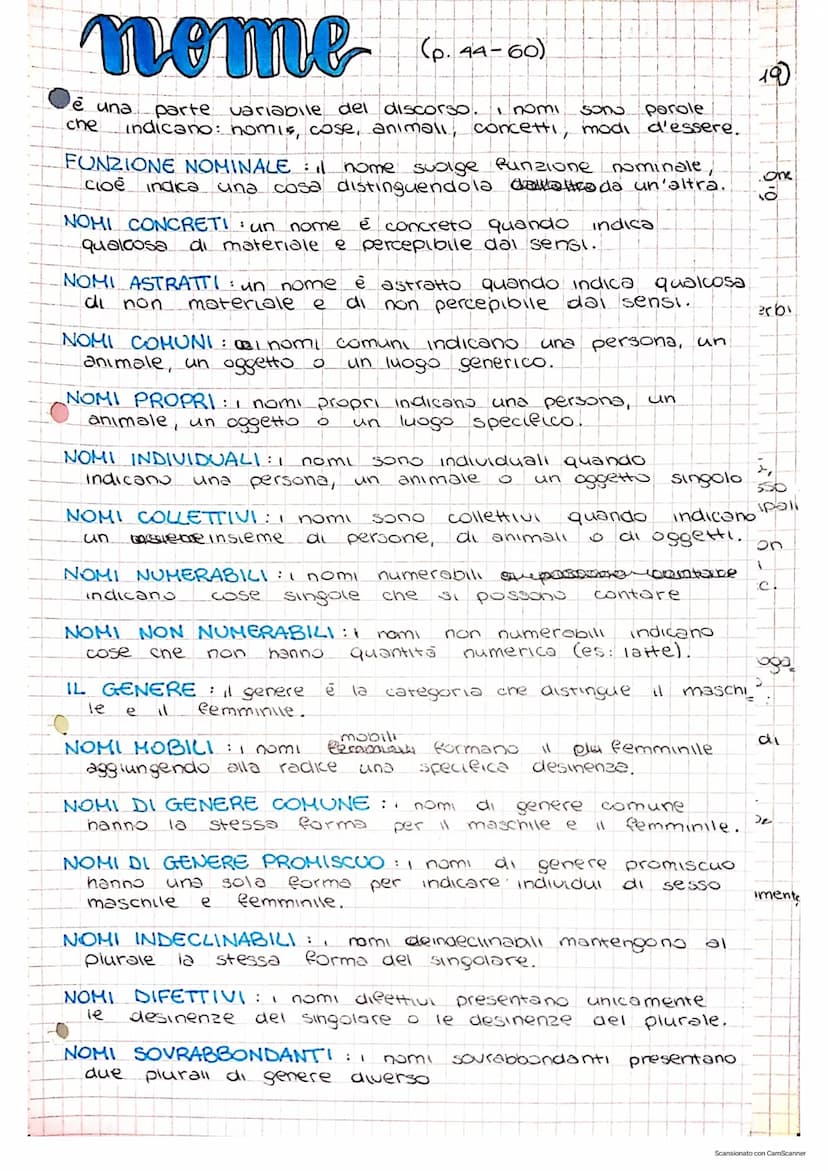 nome (p. 44-60)
19
è una parte variabile del discorso. i nomi sono parole
che indicano: nomi, cose, animali, concetti, modi d'essere.
FUNZIONE NOMINALE : il nome svolge funzione nominale,
cioè indica una cosa distinguendola da un'altra.
NOMI CONCRETI : un nome è concreto quando indica
qualcosa di materiale e percepibile dai sensi.
NOMI ASTRATTI : un nome è astratto quando indica qualcosa
di non materiale e di non percepibile dai sensi.
erbi
NOMI COMUNI : i nomi comuni indicano una persona, un
animale, un oggetto o un luogo generico.
NOMI PROPRI : i nomi propri indicano una persona, un
animale, un oggetto o un luogo specifico.
NOMI INDIVIDUALI : i nomi sono individuali quando
indicano una persona, un animale o un oggetto singolo
NOMI COLLETTIVI : i nomi sono collettivi quando indicano
un insieme di persone, di animali o di oggetti.
on
NOMI NUMERABILI : i nomi numerabili
indicano cose singole che si possono contare
c.
NOMI NON NUMERABILI : i nomi non numerabili indicano
cose che non hanno quantità numerica (es: latte).
IL GENERE : il genere è la categoria che distingue il maschi_
le e il femminile.
di
NOMI MOBILI : i nomi mobili formano il plu femminile
aggiungendo alla radice una specifica desinenza.
NOMI DI GENERE COMUNE : i nomi di genere comune
hanno la stessa forma per il maschile e il femminile.
NOMI DI GENERE PROMISCUO : i nomi di genere promiscuo
hanno una sola forma per indicare individui di sesso
maschile e femminile.
imente
NOMI INDECLINABILI : i nomi indeclinabili mantengono al
plurale la stessa forma del singolare.
NOMI DIFETTIVI : i nomi difettivi presentano unicamente
le desinenze del singolare o le desinenze del plurale.
NOMI SOVRABBONDANTI : i nomi sovrabbondanti presentano
due plurali di genere diverso
Scansionato con CamScanner